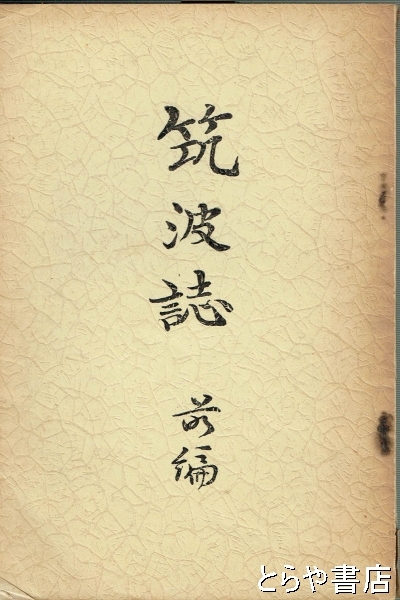 筑波誌
前編
とらや書店